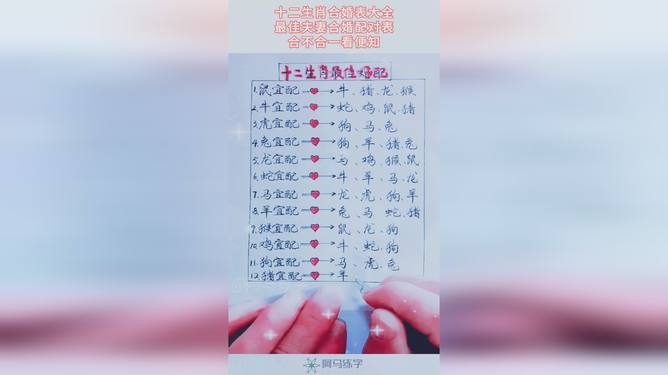 十二生肖合婚表大全
最佳夫妻合婚配对表
合不合一看便知
十二生肖最佳婚配
1.鼠宜配 牛、猪、龙、猴
2.牛宜配 蛇、鸡、鼠、猪
3.虎宜配 狗、马、兔
4.兔宜配 狗、羊、猪、兔
5.龙宜配 马、鸡、猴、鼠
6.蛇宜配 牛、羊、马、龙
7.马宜配 龙、虎、狗、羊
8.羊宜配 兔、马、蛇、猪
9.猴宜配 鼠、龙、狗
10.鸡宜配 牛、蛇、狗
11.狗宜配 马、虎、兔
12.猪宜配 羊、
阿马练字